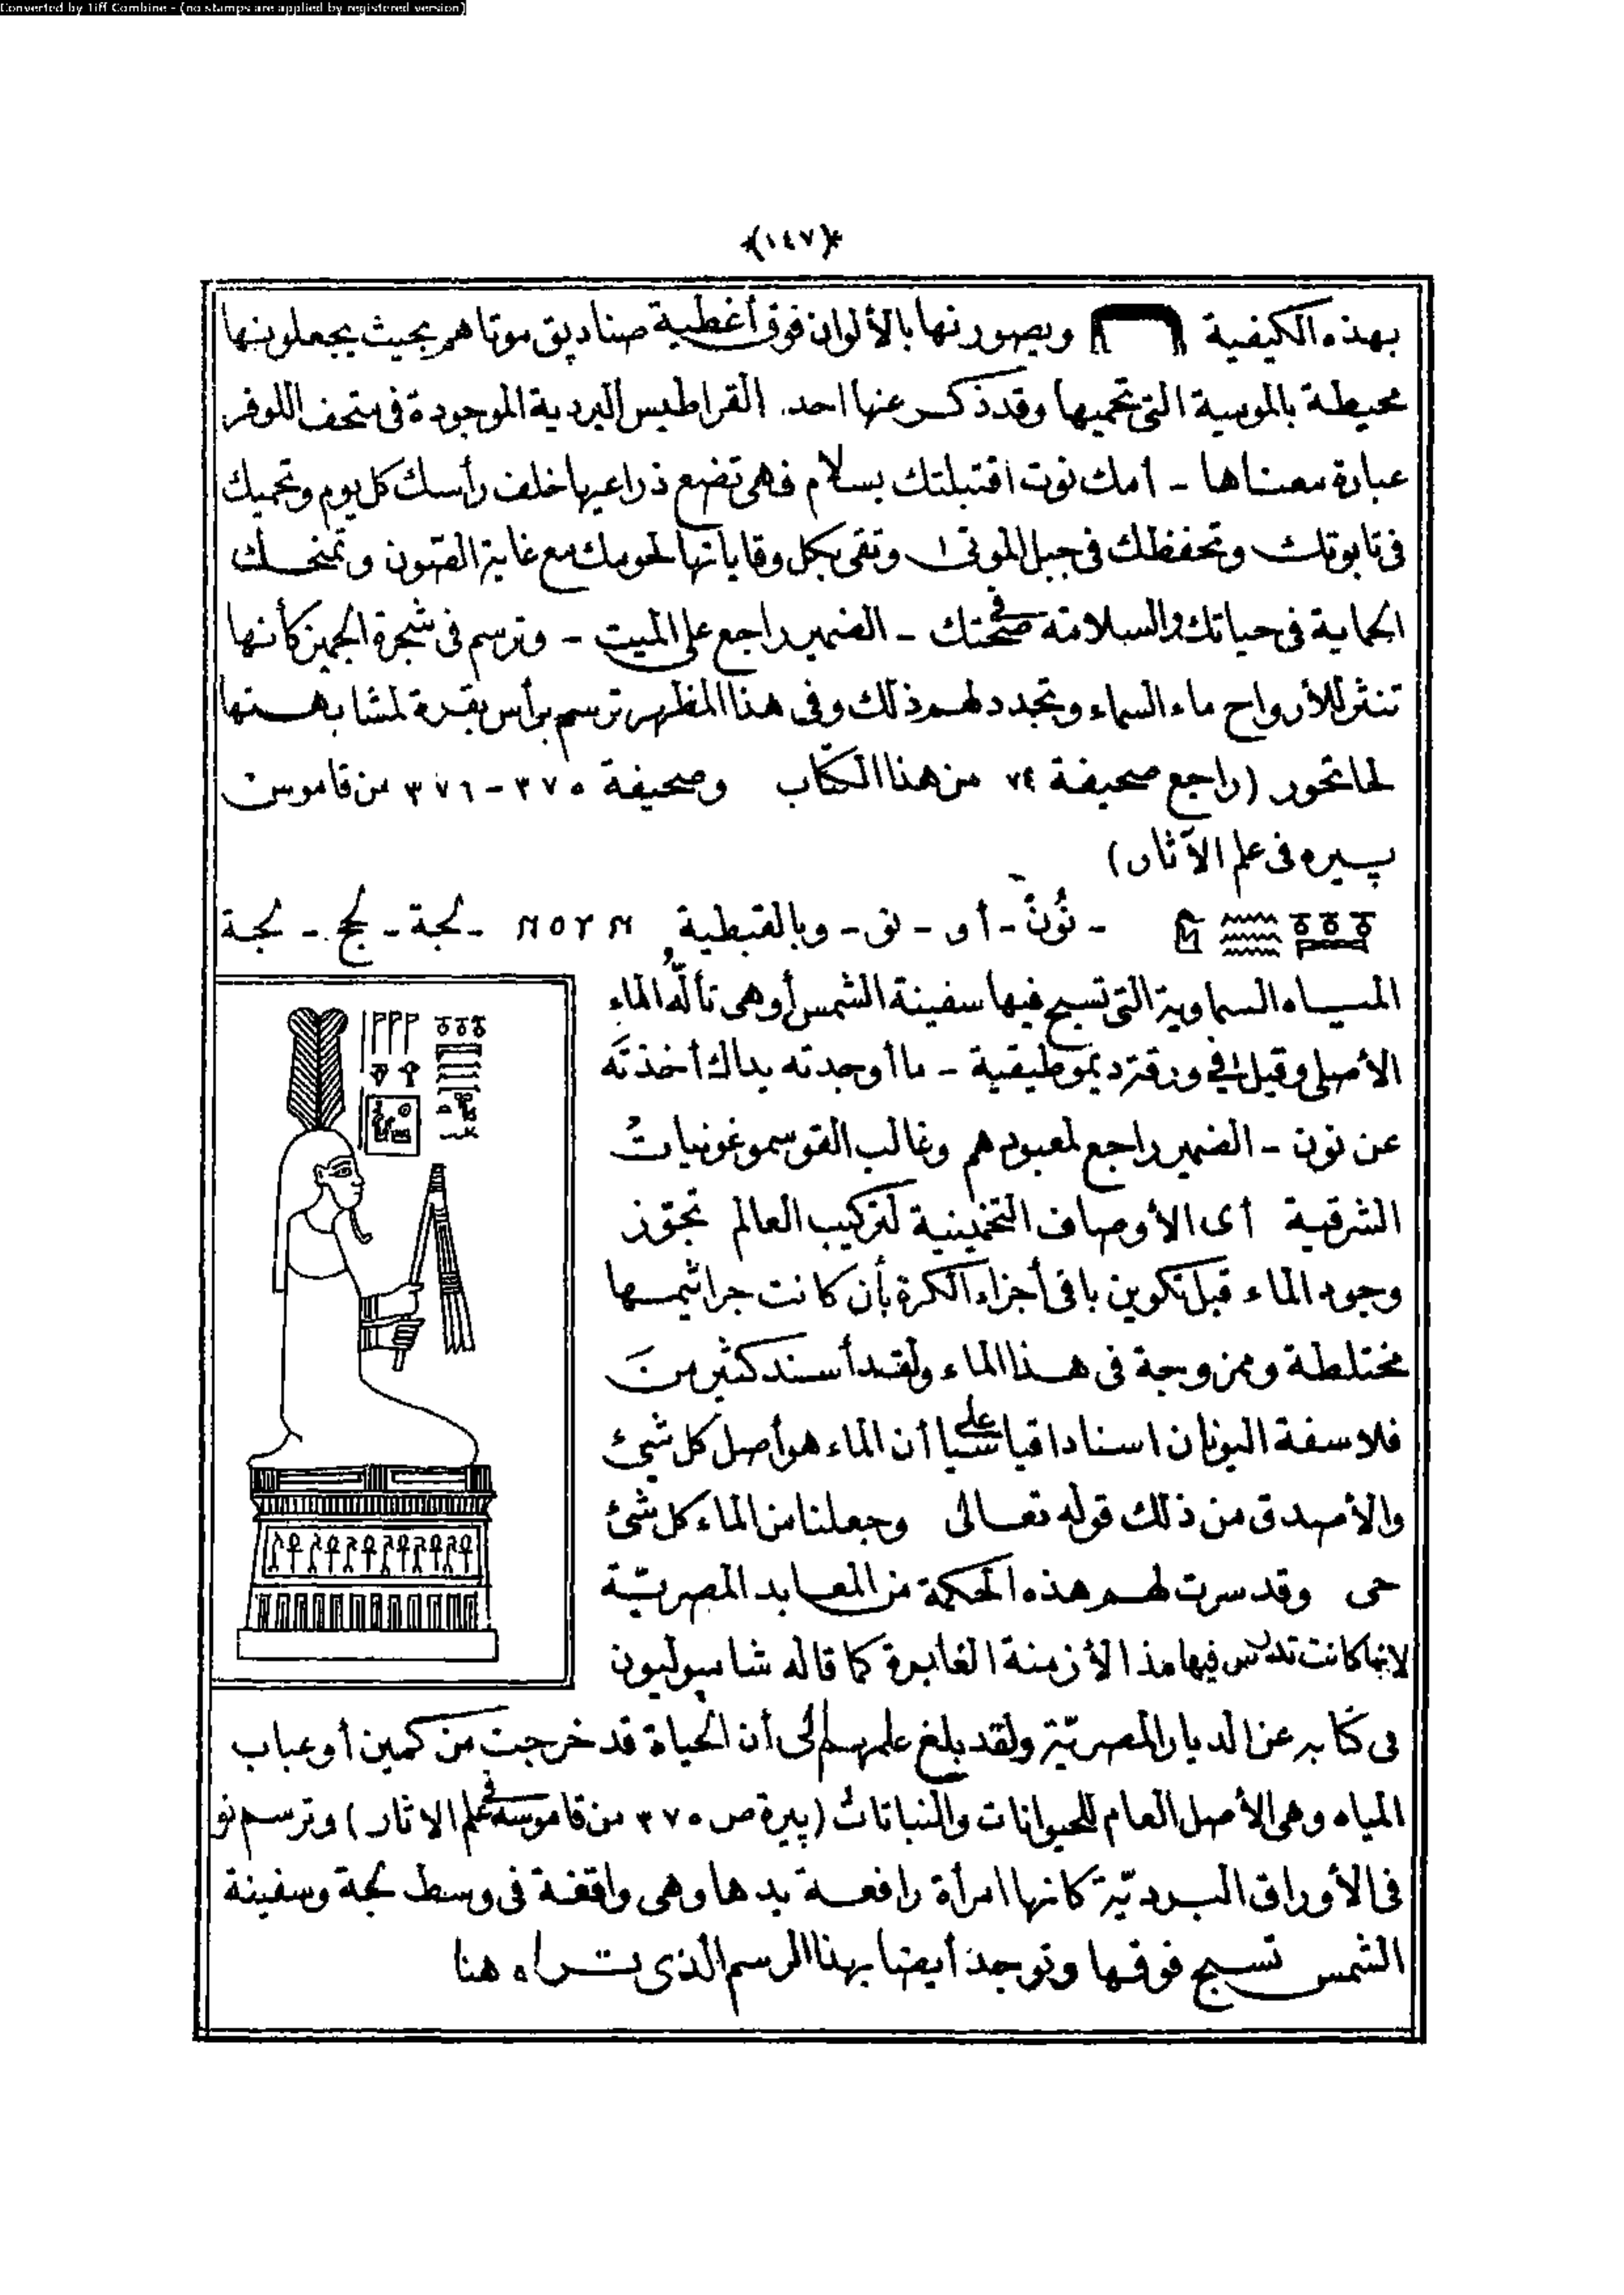 Converted by Tiff Combine - (no stamps are applied by registered version)
﴿١٤٧﴾
بهذه الكيفية ويصورنها بالألوان فوق أغطية صناديق موتاهم بحيث يجعلونها
محيطة بالموسية التى تحميها وقد ذكر عنها احد القراطيس البردية الموجودة فى متحف اللوفر
عبارة معناها - أمك نوت اقتبلتك بسلام فهى تضع ذراعيها خلف رأسك كل يوم وتحميك
فى تابوتك وتحفظك فى جبل الموتى وتقى بكل وقاياتها لحومك مع غاية الصون وتمنحك
الحماية فى حياتك والسلامة فى صحتك - الضمير راجع على الميت - وترسم فى شجرة الجميز كأنها
تنثر للأرواح ماء السماء وتجدد لهم ذلك وفى هذا المظهر ترسم برأس بقرة لمشابهتها
لحاتحور (راجع صحيفة ٧٤ من هذا الكتاب وصحيفة ٣٧٥-٣٧٦ من قاموس
پيره فى علم الآثار)
- نُونْ - أو - نو - وبالقبطية ⲛⲟⲩⲛ - لجة - لج - لجة
المياه السماوية التى تسبح فيها سفينة الشمس أو هى تألّه الماء
الأصلى وقيل فى ورقة ديموطيقية - ما أوجدته يداك أخذتَه
عن نون - الضمير راجع لمعبودهم وغالب القوسموغونيات
الشرقية أى الأوصاف التخمينية لتركيب العالم تجوّز
وجود الماء قبل تكوين باقى أجزاء الكرة بأن كانت جراثيمها
مختلطة وممزوجة فى هذا الماء ولقد أسند كثير من
فلاسفة اليونان اسنادا قياسيا على أن الماء هو أصل كل شئ
والأصدق من ذلك قوله تعالى وجعلنا من الماء كل شئ
حى وقد سرت لهم هذه الحكمة من المعابد المصريّة
لانها كانت تدرس فيها مذ الأزمنة الغابرة كما قاله شامبوليون
فى كتابه عن الديار المصريّة ولقد بلغ علمهم إلى أن الحياة قد خرجت من كمين أو عباب
المياه وهى الأصل العام للحيوانات والنباتات (پيرة ص ٣٧٥ من قاموسه فى علم الاثار) وترسم نو
فى الأوراق البرديّة كانها امرأة رافعة يدها وهى واقفة فى وسط لجة وسفينة
الشمس تسبح فوقها وتوجد أيضا بهذا الرسم الذى تراه هنا